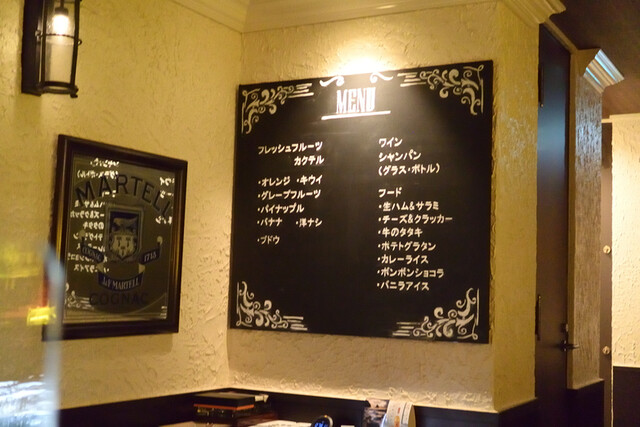 MENU
フレッシュフルーツ
カクテル
・オレンジ ・キウイ
・グレープフルーツ
・パイナップル
・バナナ ・洋ナシ
・ブドウ
ワイン
シャンパン
(グラス・ボトル)
フード
・生ハム&サラミ
・チーズ&クラッカー
・牛のタタキ
・ポテトグラタン
・カレーライス
・ボンボンショコラ
・バニラアイス
MARTELL
J&F MARTELL
COGNAC